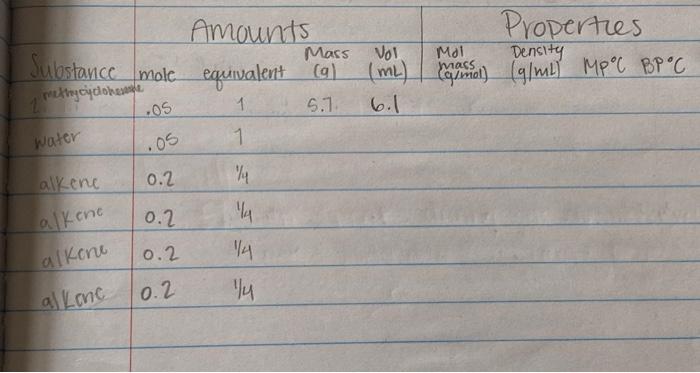 Amounts Properties
Substance mole equivalent Mass (g) Vol (mL) Mol mass (g/mol) Density (g/mL) MP°C BP°C
.05 1 5.7 6.1
water .05 1
alkene 0.2 1/4
alkene 0.2 1/4
alkene 0.2 1/4
alkene 0.2 1/4